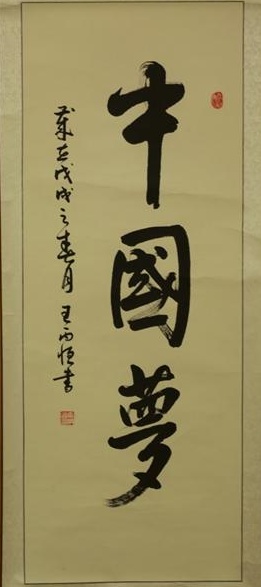 中國夢
歲在戊戌之春月 王丙恒書